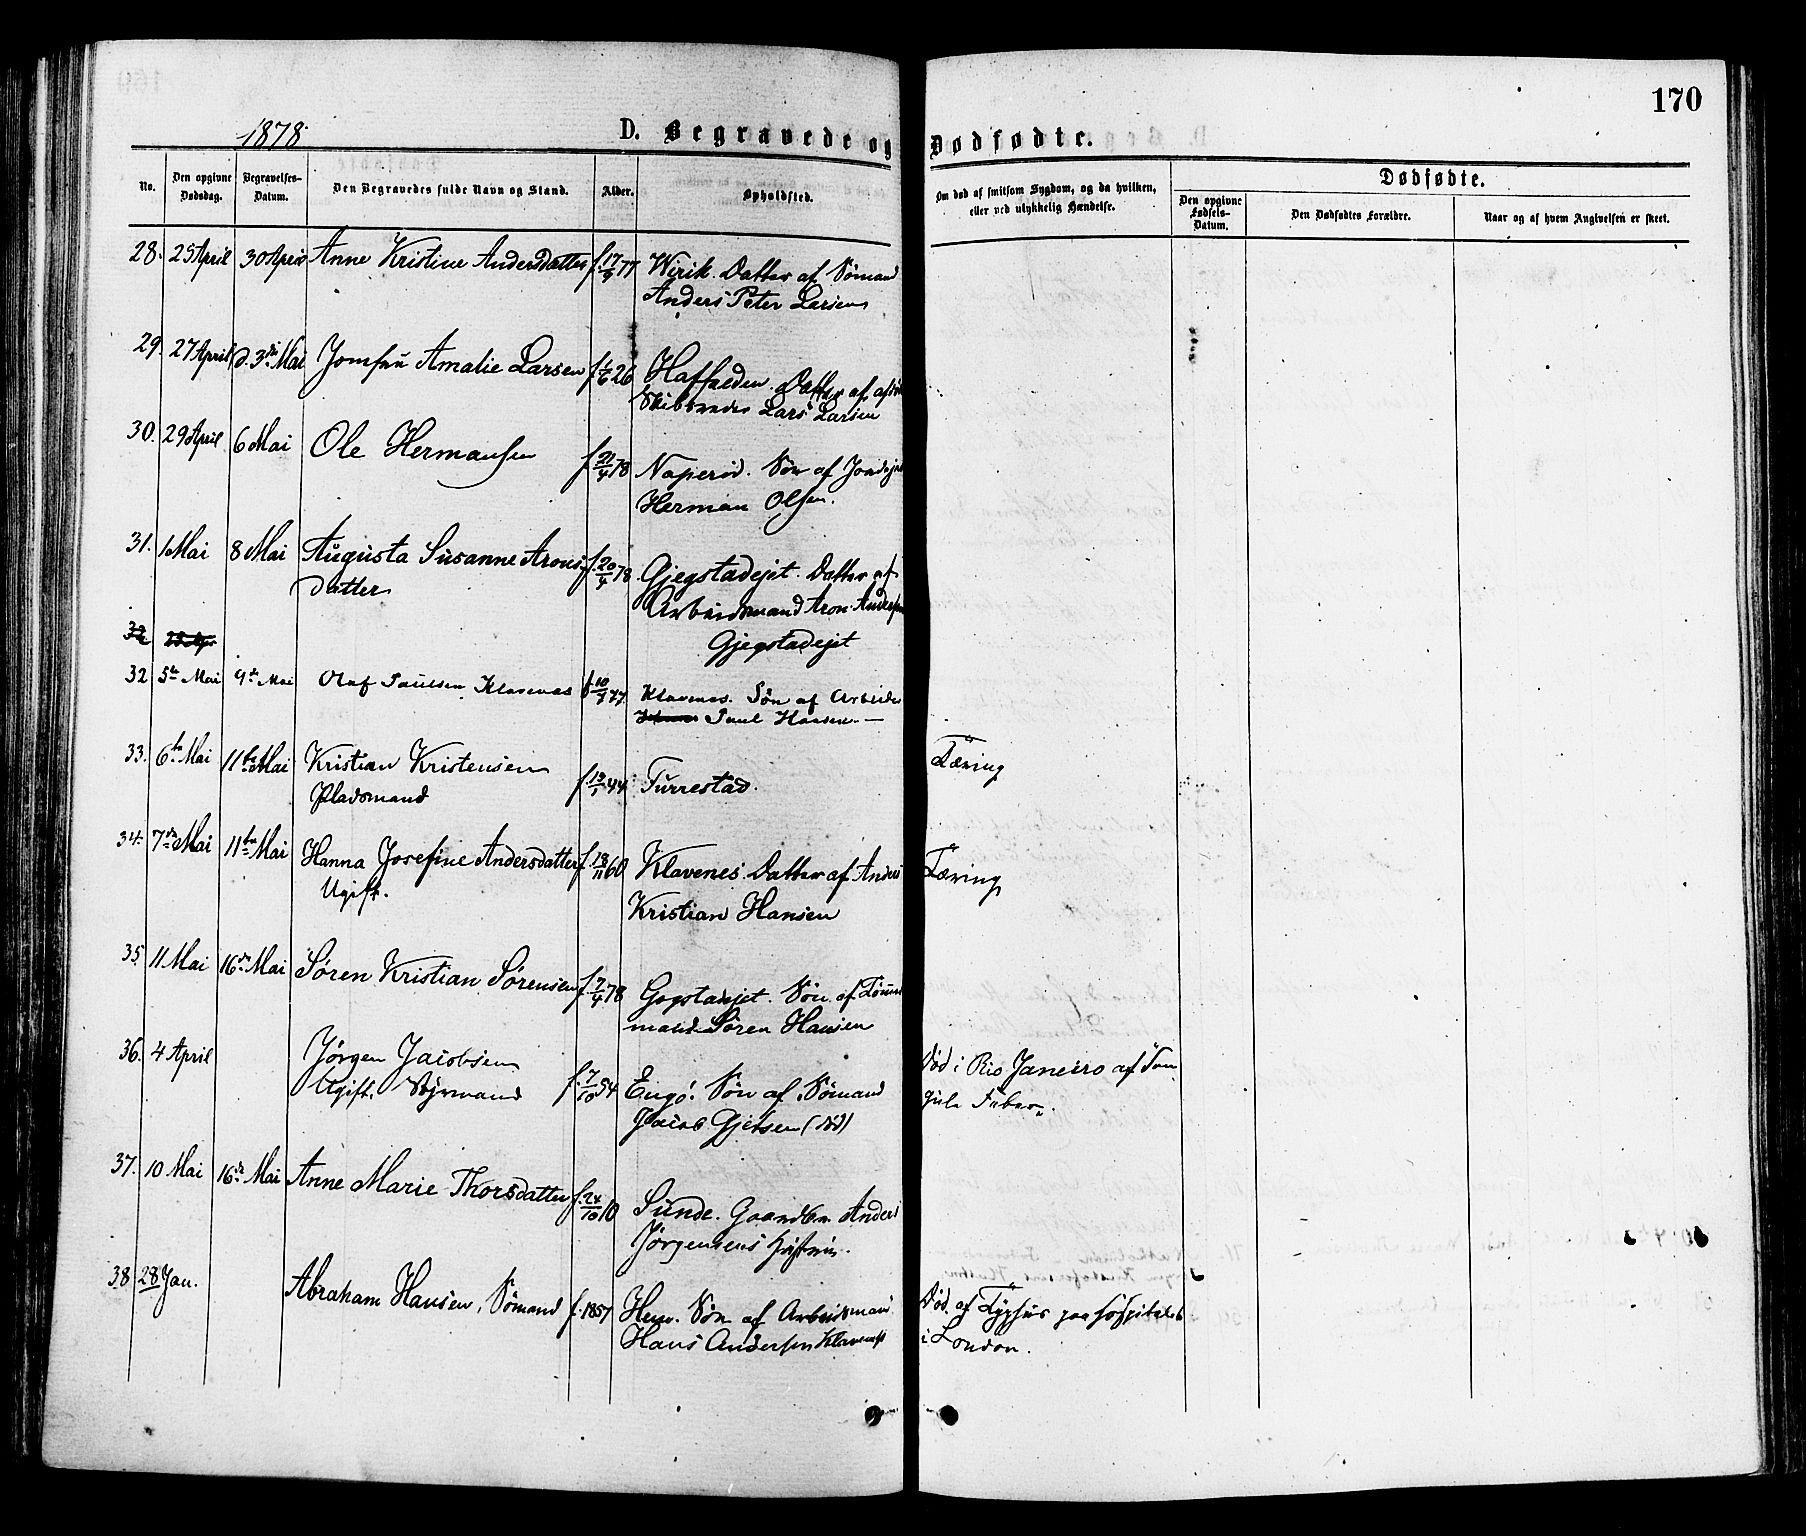 170
1878.
D. Begravede og Dødfødte.
No.
Den opgivne Dødsdag.
Begravelses-Datum.
Den Begravedes fulde Navn og Stand.
Alder.
Opholdssted.
Om død af smitsom Sygdom, og da hvilken, eller ved ulykkelig Hændelse.
Dødfødte.
Den opgivne Fødsels-Datum.
Den Dødfødtes Forældre.
Naar og af hvem Angivelsen er skeet.
28. 25 April 30 April Anne Kristine Andersdatter f. 17/9 77 Wirik. Datter af Sømand
Anders Peter Larsen
29. 27 April d. 3die Mai Jomfru Amalie Larsen 26 Datter af
Lars Larsen
30. 29 April 6 Mai Ole Hermansen f. 21/4 78 Naperød. Søn af
Herman Olsen.
31. 1 Mai 8 Mai Augusta Susanne Arons f. 20/4 78 Gjegstadejet. Datter af
datter Arbeidsmand Aron Andersen
Gjegstadejet
32 5te Mai 9de Mai Olaf Paulsen Klavenes f. 10/7 77. Klavenes. Søn af Arbeider
Paul Hansen —
33. 6te Mai 11te Mai Kristian Kristensen f. 13/1 44 Furrestad. Tæring
Pladsmand
34. 7de Mai 11te Mai Hanna Josefine Andersdatter f. 18/11 60 Klavenes. Datter af Anders Tæring
Ugift. Kristian Hansen
35. 11 Mai 16de Mai Søren Kristian Sørensen f. 7/4 78 Gogstadejet. Søn af Tømmer
mand Søren Hansen
36. 4 April Jørgen Jacobsen f. 7/10 54 Engø. Søn af Sømand Død i Rio Janeiro af den
Ugift. Styrmand Jacob Gjertsen (død) gule Feber.
37. 10 Mai 16de Mai Anne Marie Thorsdatter f. 24/10 10 Sunde. Gaardbr. Anders
Jørgensens
38 28 Jan. Abraham Hansen, Sømand f. 1857 Hem. Søn af Arbeidsmand Død af Typhus paa Hospitalet
Hans Andersen Klavenes i London.